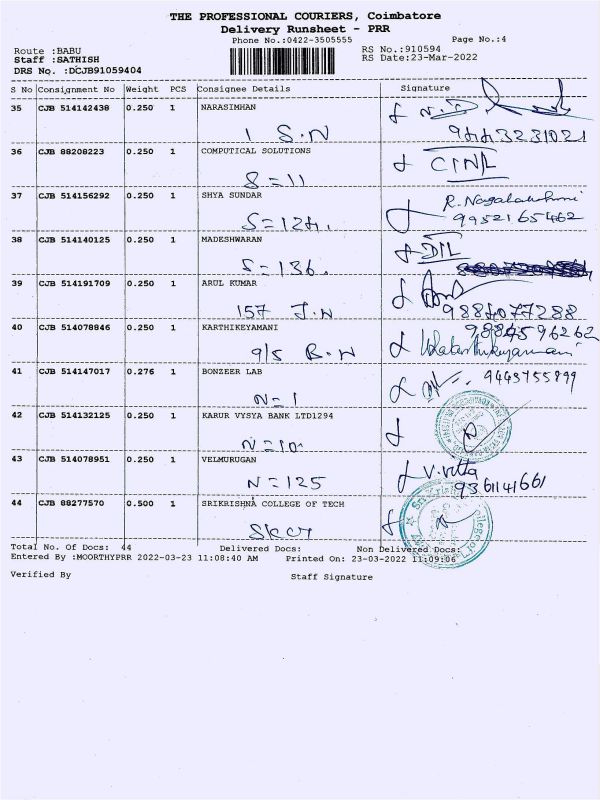 THE PROFESSIONAL COURIERS, Coimbatore
Delivery Runsheet - PRR
Phone No.:0422-3505555 Page No.:4
Route :BABU RS No.:910594
Staff :SATHISH RS Date:23-Mar-2022
DRS No. :DCJB91059404
S No Consignment No Weight PCS Consignee Details Signature
35 CJB 514142438 0.250 1 NARASIMHAN
1 S.N
36 CJB 88208223 0.250 1 COMPUTICAL SOLUTIONS
S=11
37 CJB 514156292 0.250 1 SHYA SUNDAR R. Nagalakshmi
9952165462
38 CJB 514140125 0.250 1 MADESHWARAN
S=136.
39 CJB 514191709 0.250 1 ARUL KUMAR
157 J.N 9884077288
40 CJB 514078846 0.250 1 KARTHIKEYAMANI
9/5 B.N
41 CJB 514147017 0.276 1 BONZEER LAB 9443755899
N=1
42 CJB 514132125 0.250 1 KARUR VYSYA BANK LTD1294
43 CJB 514078951 0.250 1 VELMURUGAN
N=125 9361141661
44 CJB 88277570 0.500 1 SRIKRISHNA COLLEGE OF TECH
SKCT
Total No. Of Docs: 44 Delivered Docs: Non Delivered Docs:
Entered By :MOORTHYPRR 2022-03-23 11:08:40 AM Printed On: 23-03-2022 11:09:06
Verified By Staff Signature